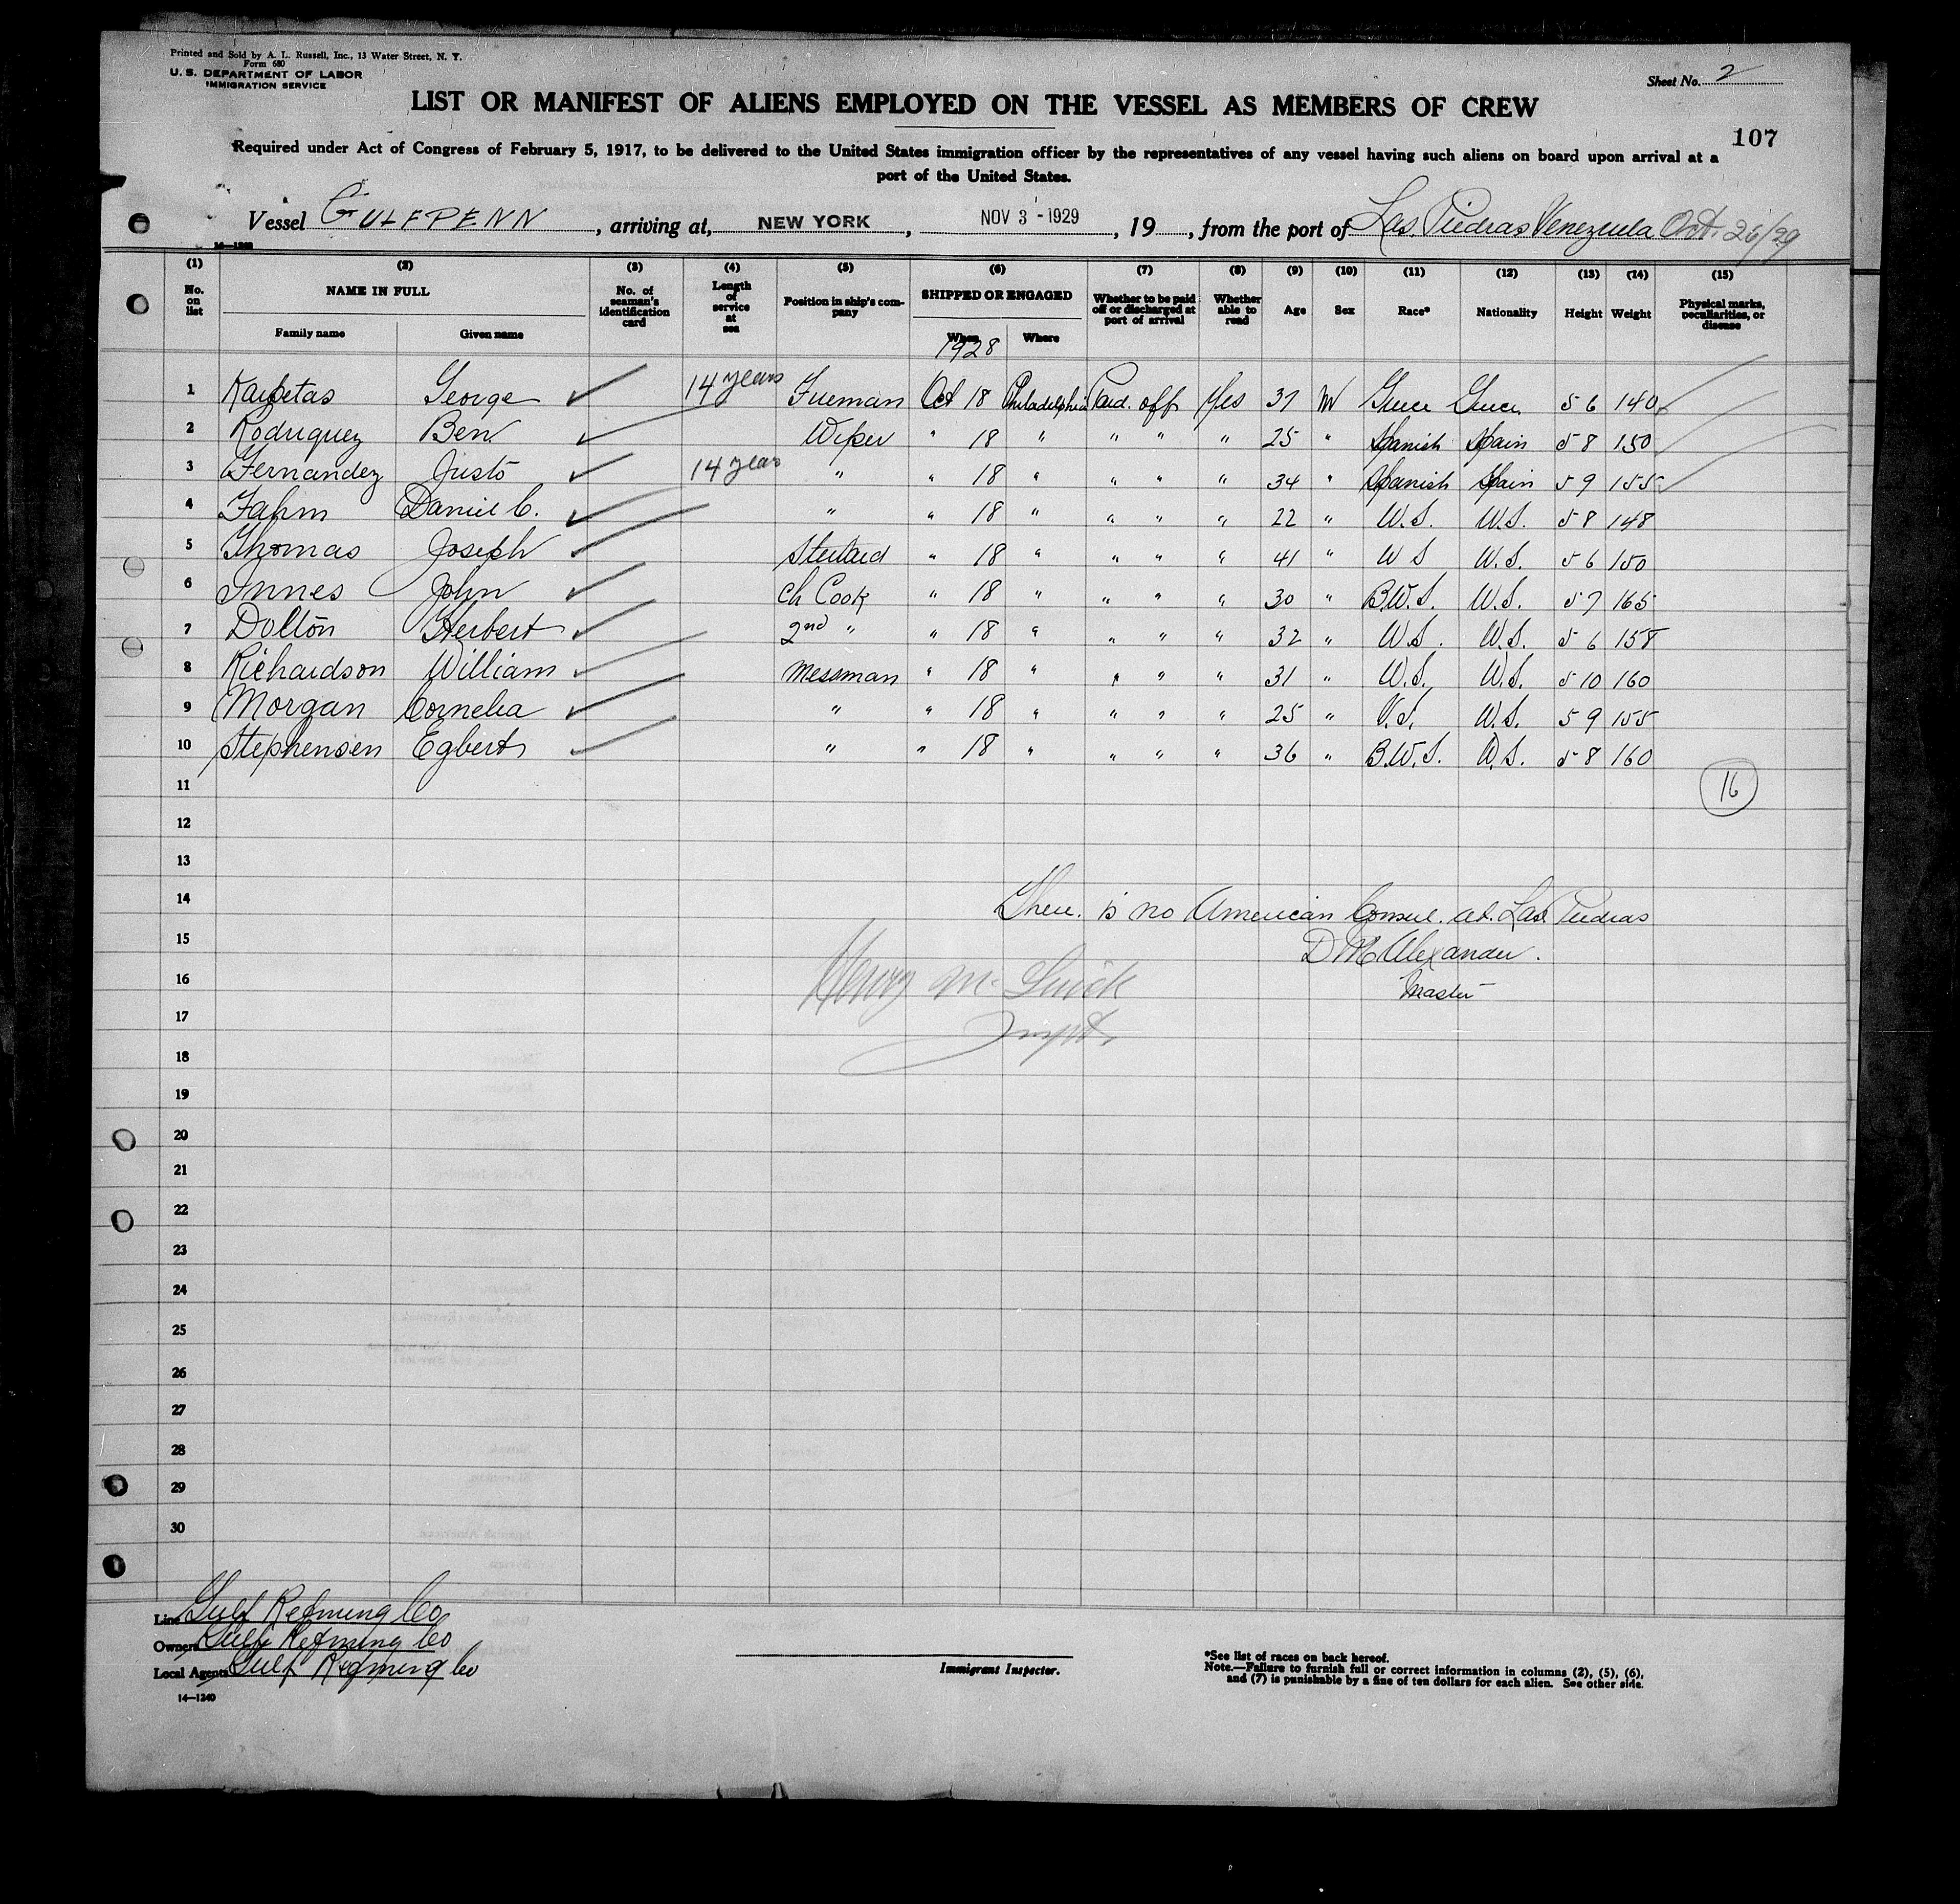 Printed and Sold by A. L. Russell, Inc., 13 Water Street, N. Y.
Form 680
U. S. DEPARTMENT OF LABOR
IMMIGRATION SERVICE
Sheet No. 2
LIST OR MANIFEST OF ALIENS EMPLOYED ON THE VESSEL AS MEMBERS OF CREW
107
Required under Act of Congress of February 5, 1917, to be delivered to the United States immigration officer by the representatives of any vessel having such aliens on board upon arrival at a
port of the United States.
Vessel GULFPENN, arriving at, NEW YORK, NOV 3 - 1929, 19 , from the port of Las Piedras Venezuela Oct. 26/29
14—1240
(1) (2) (3) (4) (5) (6) (7) (8) (9) (10) (11) (12) (13) (14) (15)
No. on list NAME IN FULL Family name Given name No. of seaman's identification card Length of service at sea Position in ship's company SHIPPED OR ENGAGED When Where Whether to be paid off or discharged at port of arrival Whether able to read Age Sex Race* Nationality Height Weight Physical marks, peculiarities, or disease
1928
1 George 14 years Fireman Oct 18 Philadelphia Paid off Yes 37 M Greece Greece 5 6 140
2 Rodriguez Ben Wiper " 18 " " " " 25 " Spanish Spain 5 8 150
3 Fernandez Justo 14 years " " 18 " " " " 34 " Spanish Spain 5 9 155
4 Fahm Daniel C. " " 18 " " " " 22 " U.S. U.S. 5 8 148
5 Thomas Joseph Steward " 18 " " " " 41 " U S U.S. 5 6 150
6 Innes John Ch Cook " 18 " " " " 30 " B.W.I. U.S. 5 7 165
7 Dolton Herbert 2nd " " 18 " " " " 32 " U.S. U.S. 5 6 158
8 Richardson William Messman " 18 " " " " 31 " U.S. U.S. 5 10 160
9 Morgan Cornelia " " 18 " " " " 25 " U.S. U.S. 5 9 155
10 Stephensen Egbert " " 18 " " " " 36 " B.W.I. U.S. 5 8 160
11 16
12
13
14 There is no American Consul at Las Piedras
15 D M Alexander.
16 Master
Henry
17
Inspt.
18
19
20
21
22
23
24
25
26
27
28
29
30
Line Gulf Refining Co
Owners Gulf Refining Co
Local Agents Gulf Refining Co
14—1240
Immigrant Inspector.
*See list of races on back hereof.
Note.—Failure to furnish full or correct information in columns (2), (5), (6),
and (7) is punishable by a fine of ten dollars for each alien. See other side.